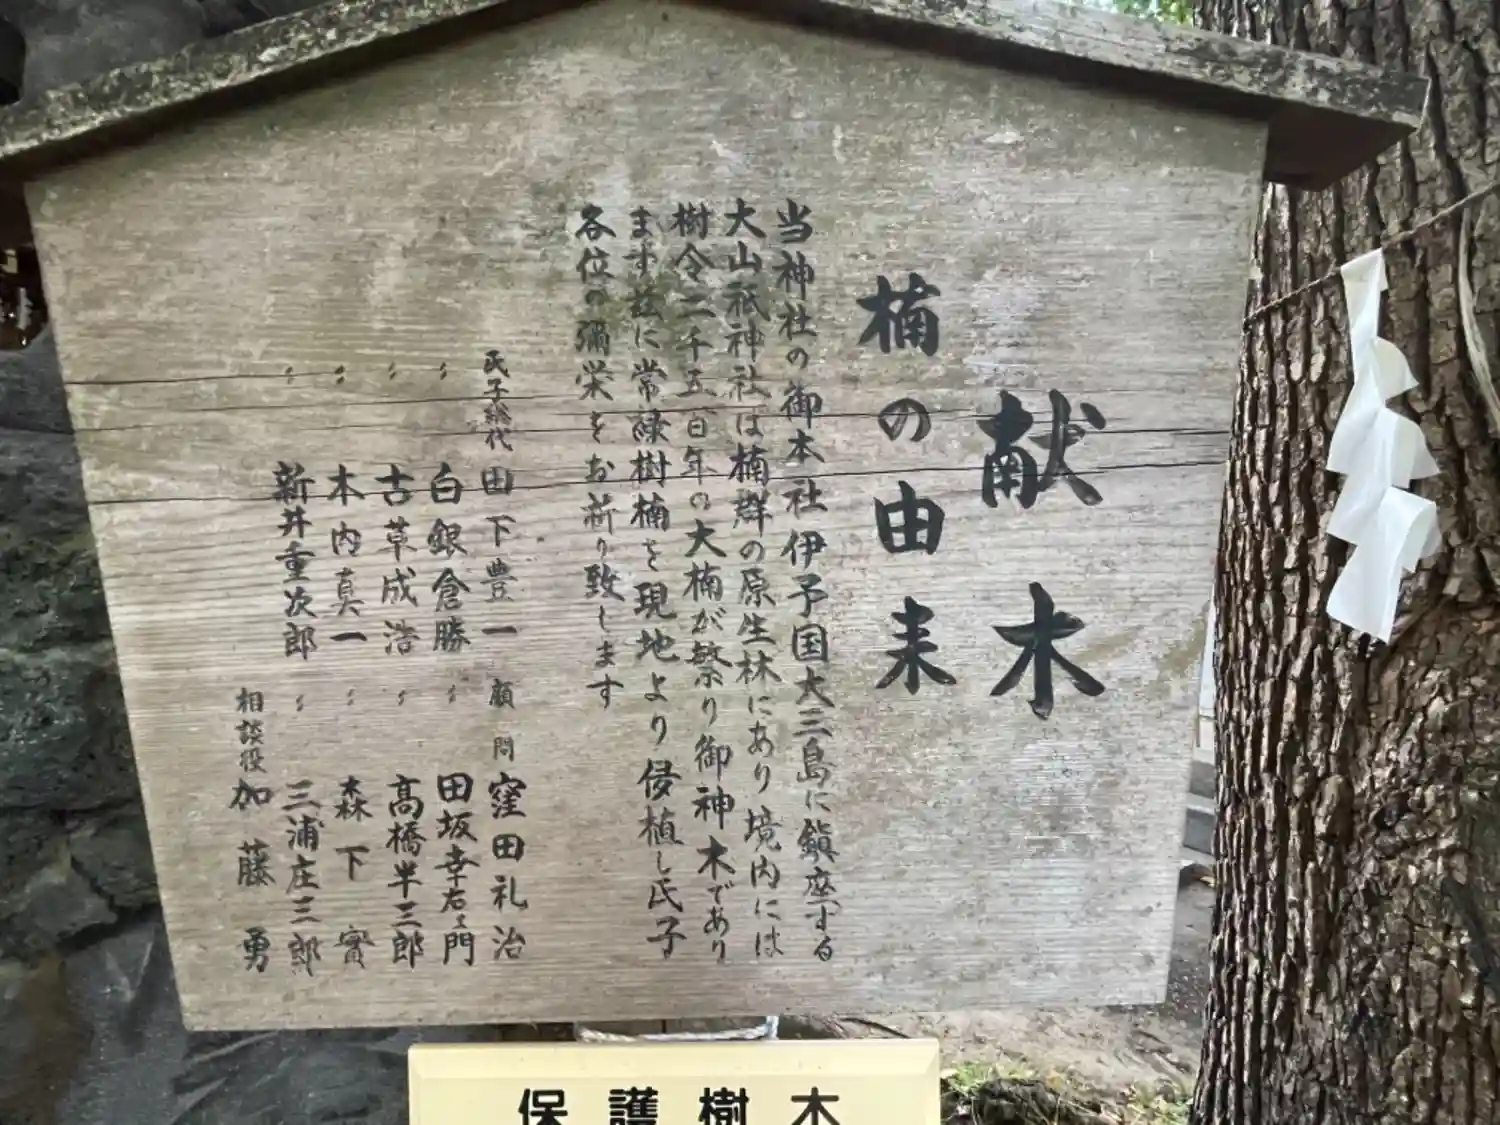 献木
楠の由来
当神社の御本社伊予国大三島に鎮座する
大山祇神社は楠群の原生林にあり境内には
樹令二千五百年の大楠が繁り御神木であり
ます玆に常緑樹楠を現地より侵植し氏子
各位の彌栄をお祈り致します
氏子総代 田下豊一 顧問 窪田礼治
〃 白銀倉勝 〃 田坂幸右ヱ門
〃 古草成浩 〃 高橋半三郎
〃 木内真一 〃 森下實
〃 新井重次郎 〃 三浦庄三郎
相談役 加藤勇
保護樹木